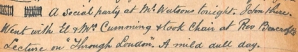 A social party at Mr Watsons tonight. John there.
Went with E & Mrs Cumming & took Chair at Rev Bancrofts
Lecture on Through London. A mild dull day.